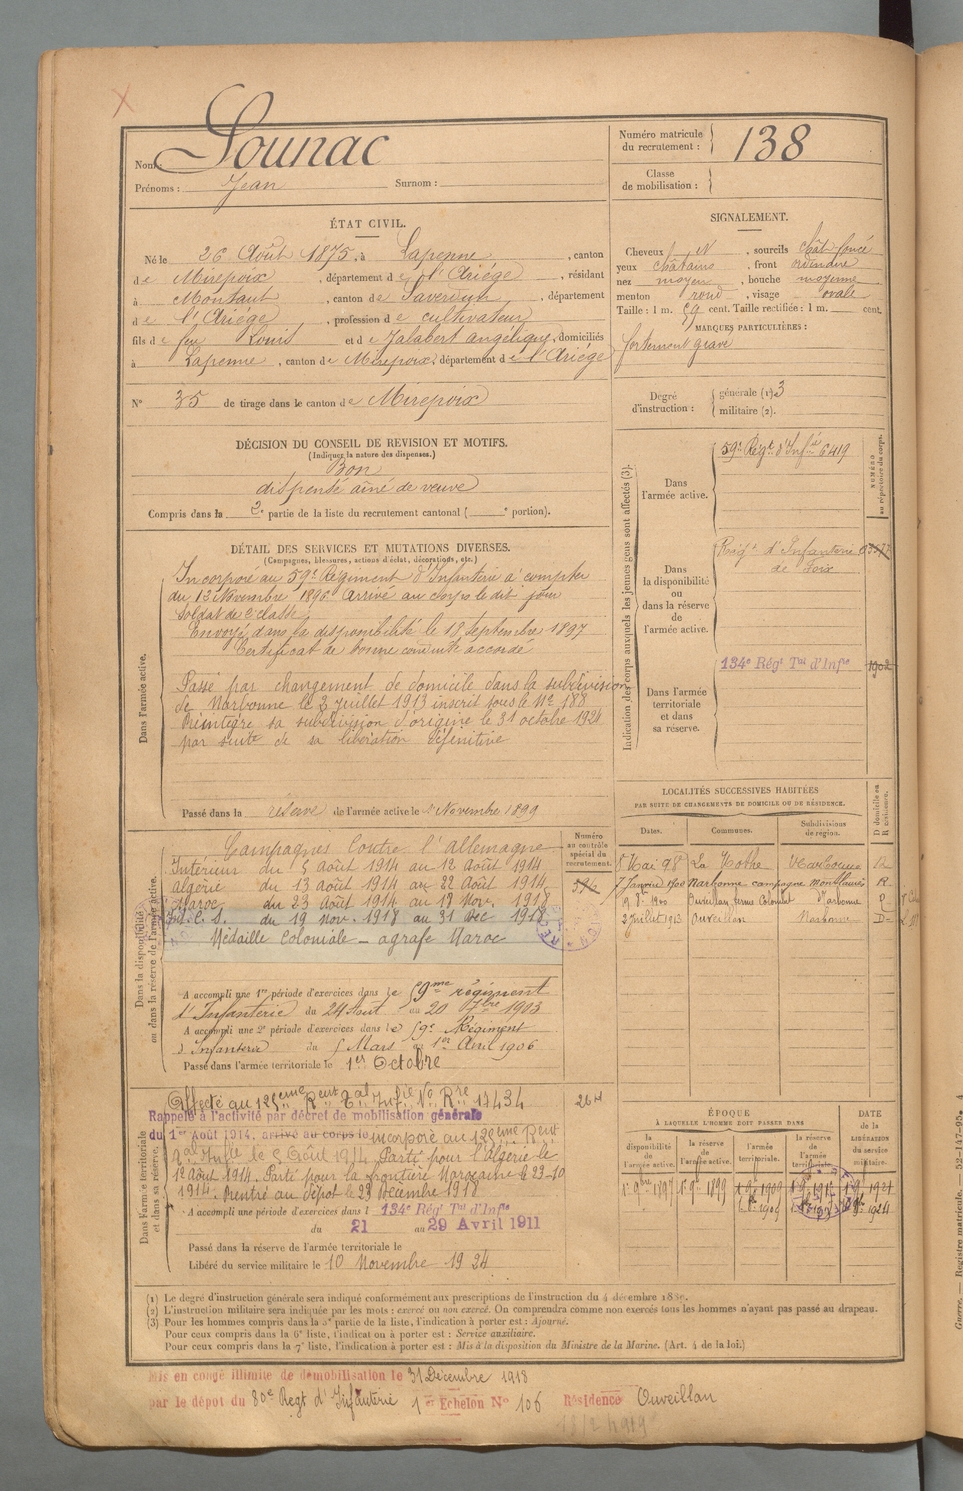 Nom : Lounac
Prénoms : Jean Surnom :
Numéro matricule du recrutement : 138
Classe de mobilisation :
ÉTAT CIVIL.
Né le 26 Août 1875, à Lapenne, canton
de Mirepoix, département de l'Ariége, résidant
à Montaut, canton de Saverdun, département
de l'Ariége, profession de cultivateur
fils de feu Louis et de Jalabert angélique, domiciliés
à Lapenne, canton de Mirepoix, département de l'Ariége
N° 35 de tirage dans le canton de Mirepoix
SIGNALEMENT.
Cheveux N, sourcils chât. foncé
yeux châtains, front ordinaire
nez moyen, bouche moyenne
menton rond, visage ovale
Taille : 1 m. 59 cent. Taille rectifiée : 1 m. cent.
MARQUES PARTICULIÈRES :
fortement gravé
Degré d'instruction : générale (1) 3
militaire (2).
DÉCISION DU CONSEIL DE REVISION ET MOTIFS.
(Indiquer la nature des dispenses.)
Bon
dispensé aîné de veuve
Compris dans la 2e partie de la liste du recrutement cantonal ( e portion).
DÉTAIL DES SERVICES ET MUTATIONS DIVERSES.
(Campagnes, blessures, actions d'éclat, décorations, etc.)
Dans l'armée active.
Incorporé au 59e Régiment d'Infanterie à compter
du 12 Novembre 1896 Arrivé au corps le dit jour
soldat de 2e classe
Envoyé dans la disponibilité le 18 Septembre 1897
Certificat de bonne conduite accordé
Passé par changement de domicile dans la subdivision
de Narbonne le 2 Juillet 1913 inscrit sous le No 188
Réintègre sa subdivision d'origine le 31 octobre 1924
par suite de sa libération définitive
Passé dans la réserve de l'armée active le 1er Novembre 1899
Indication des corps auxquels les jeunes gens sont affectés (3).
NUMÉRO au répertoire du corps.
Dans l'armée active.
59e Régt d'Infie 6419
Dans la disponibilité ou dans la réserve de l'armée active.
Régt d'Infanterie
de Foix
Dans l'armée territoriale et dans sa réserve.
134e Régt Tal d'Infie 1902
LOCALITÉS SUCCESSIVES HABITÉES
PAR SUITE DE CHANGEMENTS DE DOMICILE OU DE RÉSIDENCE.
Dates. Communes. Subdivisions de région. D domicile ou R résidence.
1er Mai 98 La Mothe Narbonne R
7 Janvier 1900 Narbonne campagne Montlaurès R
1900 Ouveillan ferme Colombet Narbonne R
2 juillet 1913 Ouveillan Narbonne D
Dans la disponibilité ou dans la réserve de l'armée active.
Numéro au contrôle spécial du recrutement.
Campagnes Contre l'allemagne
Intérieur du 5 août 1914 au 12 Août 1914
algérie du 13 août 1914 au 22 Août 1914
Maroc du 23 août 1914 au 18 Nov. 1918
du 19 Nov. 1918 au 31 Dec 1918
Médaille Coloniale – agrafe Maroc
A accompli une 1re période d'exercices dans le 59me régiment
d'Infanterie du 24 Août au 20 7bre 1903
A accompli une 2e période d'exercices dans le 59e Régiment
d'Infanterie du 5 Mars au 1er Avril 1906
Passé dans l'armée territoriale le 1er Octobre
Dans l'armée territoriale et dans sa réserve.
Affecté au 125eme Rent Tal Infie No Rre 17434
264
Rappelé à l'activité par décret de mobilisation générale
du 1er Août 1914. arrivé au corps le incorporé au 125eme Rent
Tal Infie le 5 Août 1914 Parti pour l'Algérie le
12 août 1914. Parti pour la frontière Marocaine le 23-10
1914. Rentré au Dépôt le 23 Décembre 1918
A accompli une période d'exercices dans l 134e Régt Tal d'Infie
du 21 au 29 Avril 1911
Passé dans la réserve de l'armée territoriale le
Libéré du service militaire le 10 Novembre 1924
ÉPOQUE
À LAQUELLE L'HOMME DOIT PASSER DANS
la disponibilité de l'armée active. la réserve de l'armée active. l'armée territoriale. la réserve de l'armée territoriale.
DATE de la LIBÉRATION du service militaire.
1er 9bre 1897 1er 9bre 1899 1909
(1) Le degré d'instruction générale sera indiqué conformément aux prescriptions de l'instruction du 4 décembre 1889.
(2) L'instruction militaire sera indiquée par les mots : exercé ou non exercé. On comprendra comme non exercés tous les hommes n'ayant pas passé au drapeau.
(3) Pour les hommes compris dans la 5e partie de la liste, l'indication à porter est : Ajourné.
Pour ceux compris dans la 6e liste, l'indication à porter est : Service auxiliaire.
Pour ceux compris dans la 7e liste, l'indication à porter est : Mis à la disposition du Ministre de la Marine. (Art. 4 de la loi.)
Mis en congé illimité de démobilisation le 31 Décembre 1918
par le dépôt du 80e Regt d'Infanterie 1er Echelon No 106 Résidence Ouveillan
Guerre. — Registre matricule. — 52-147-95.